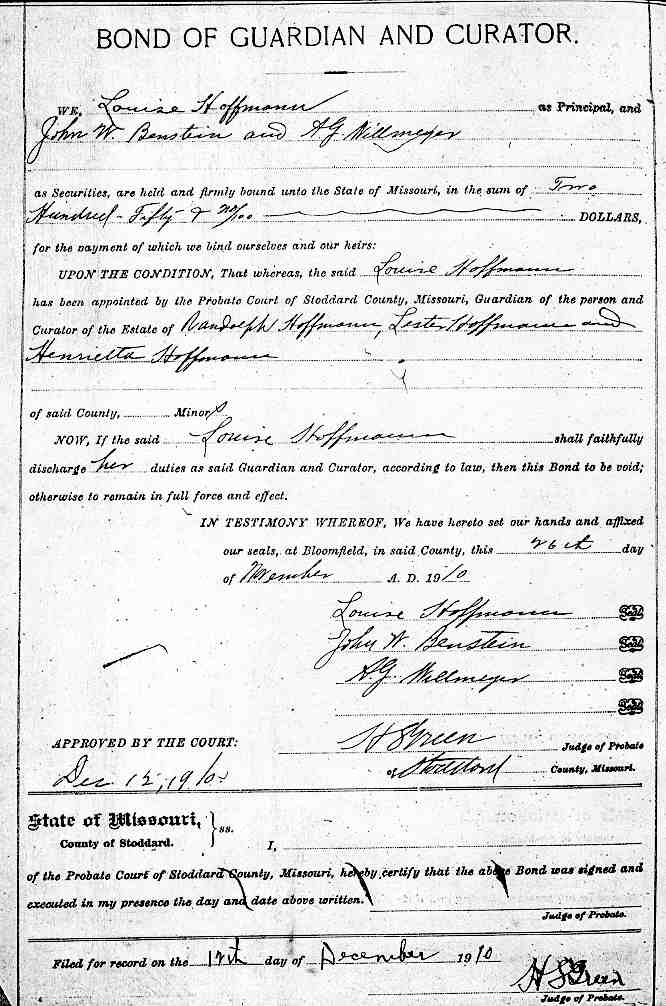 BOND OF GUARDIAN AND CURATOR.
WE, Louise Hoffmann as Principal, and
John W. Benstein and A.G. Willmeyer
as Securities, are held and firmly bound unto the State of Missouri, in the sum of Two
Hundred - Fifty & no/100 DOLLARS,
for the payment of which we bind ourselves and our heirs:
UPON THE CONDITION, That whereas, the said Louise Hoffmann
has been appointed by the Probate Court of Stoddard County, Missouri, Guardian of the person and
Curator of the Estate of Randolph Hoffmann, Lester Hoffmann and
Henrietta Hoffmann
of said County, Minors
NOW, If the said Louise Hoffmann shall faithfully
discharge her duties as said Guardian and Curator, according to law, then this Bond to be void;
otherwise to remain in full force and effect.
IN TESTIMONY WHEREOF, We have hereto set our hands and affixed
our seals, at Bloomfield, in said County, this 26th day
of November A. D. 1910
Louise Hoffmann Seal
John W. Benstein Seal
A.G. Willmeyer Seal
Seal
APPROVED BY THE COURT: H S Green Judge of Probate
Dec 12, 1910 of Stoddard County, Missouri.
State of Missouri, } ss.
County of Stoddard. I,
of the Probate Court of Stoddard County, Missouri, hereby certify that the above Bond was signed and
executed in my presence the day and date above written.
Judge of Probate.
Filed for record on the 12th day of December 1910
H S Green
Judge of Probate.